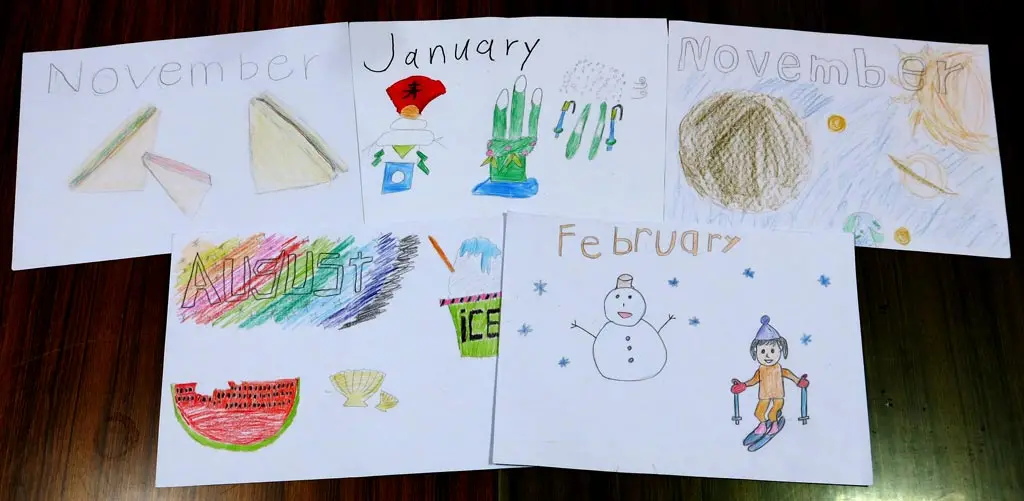 November
January
November
AUGUSt
iCE
February